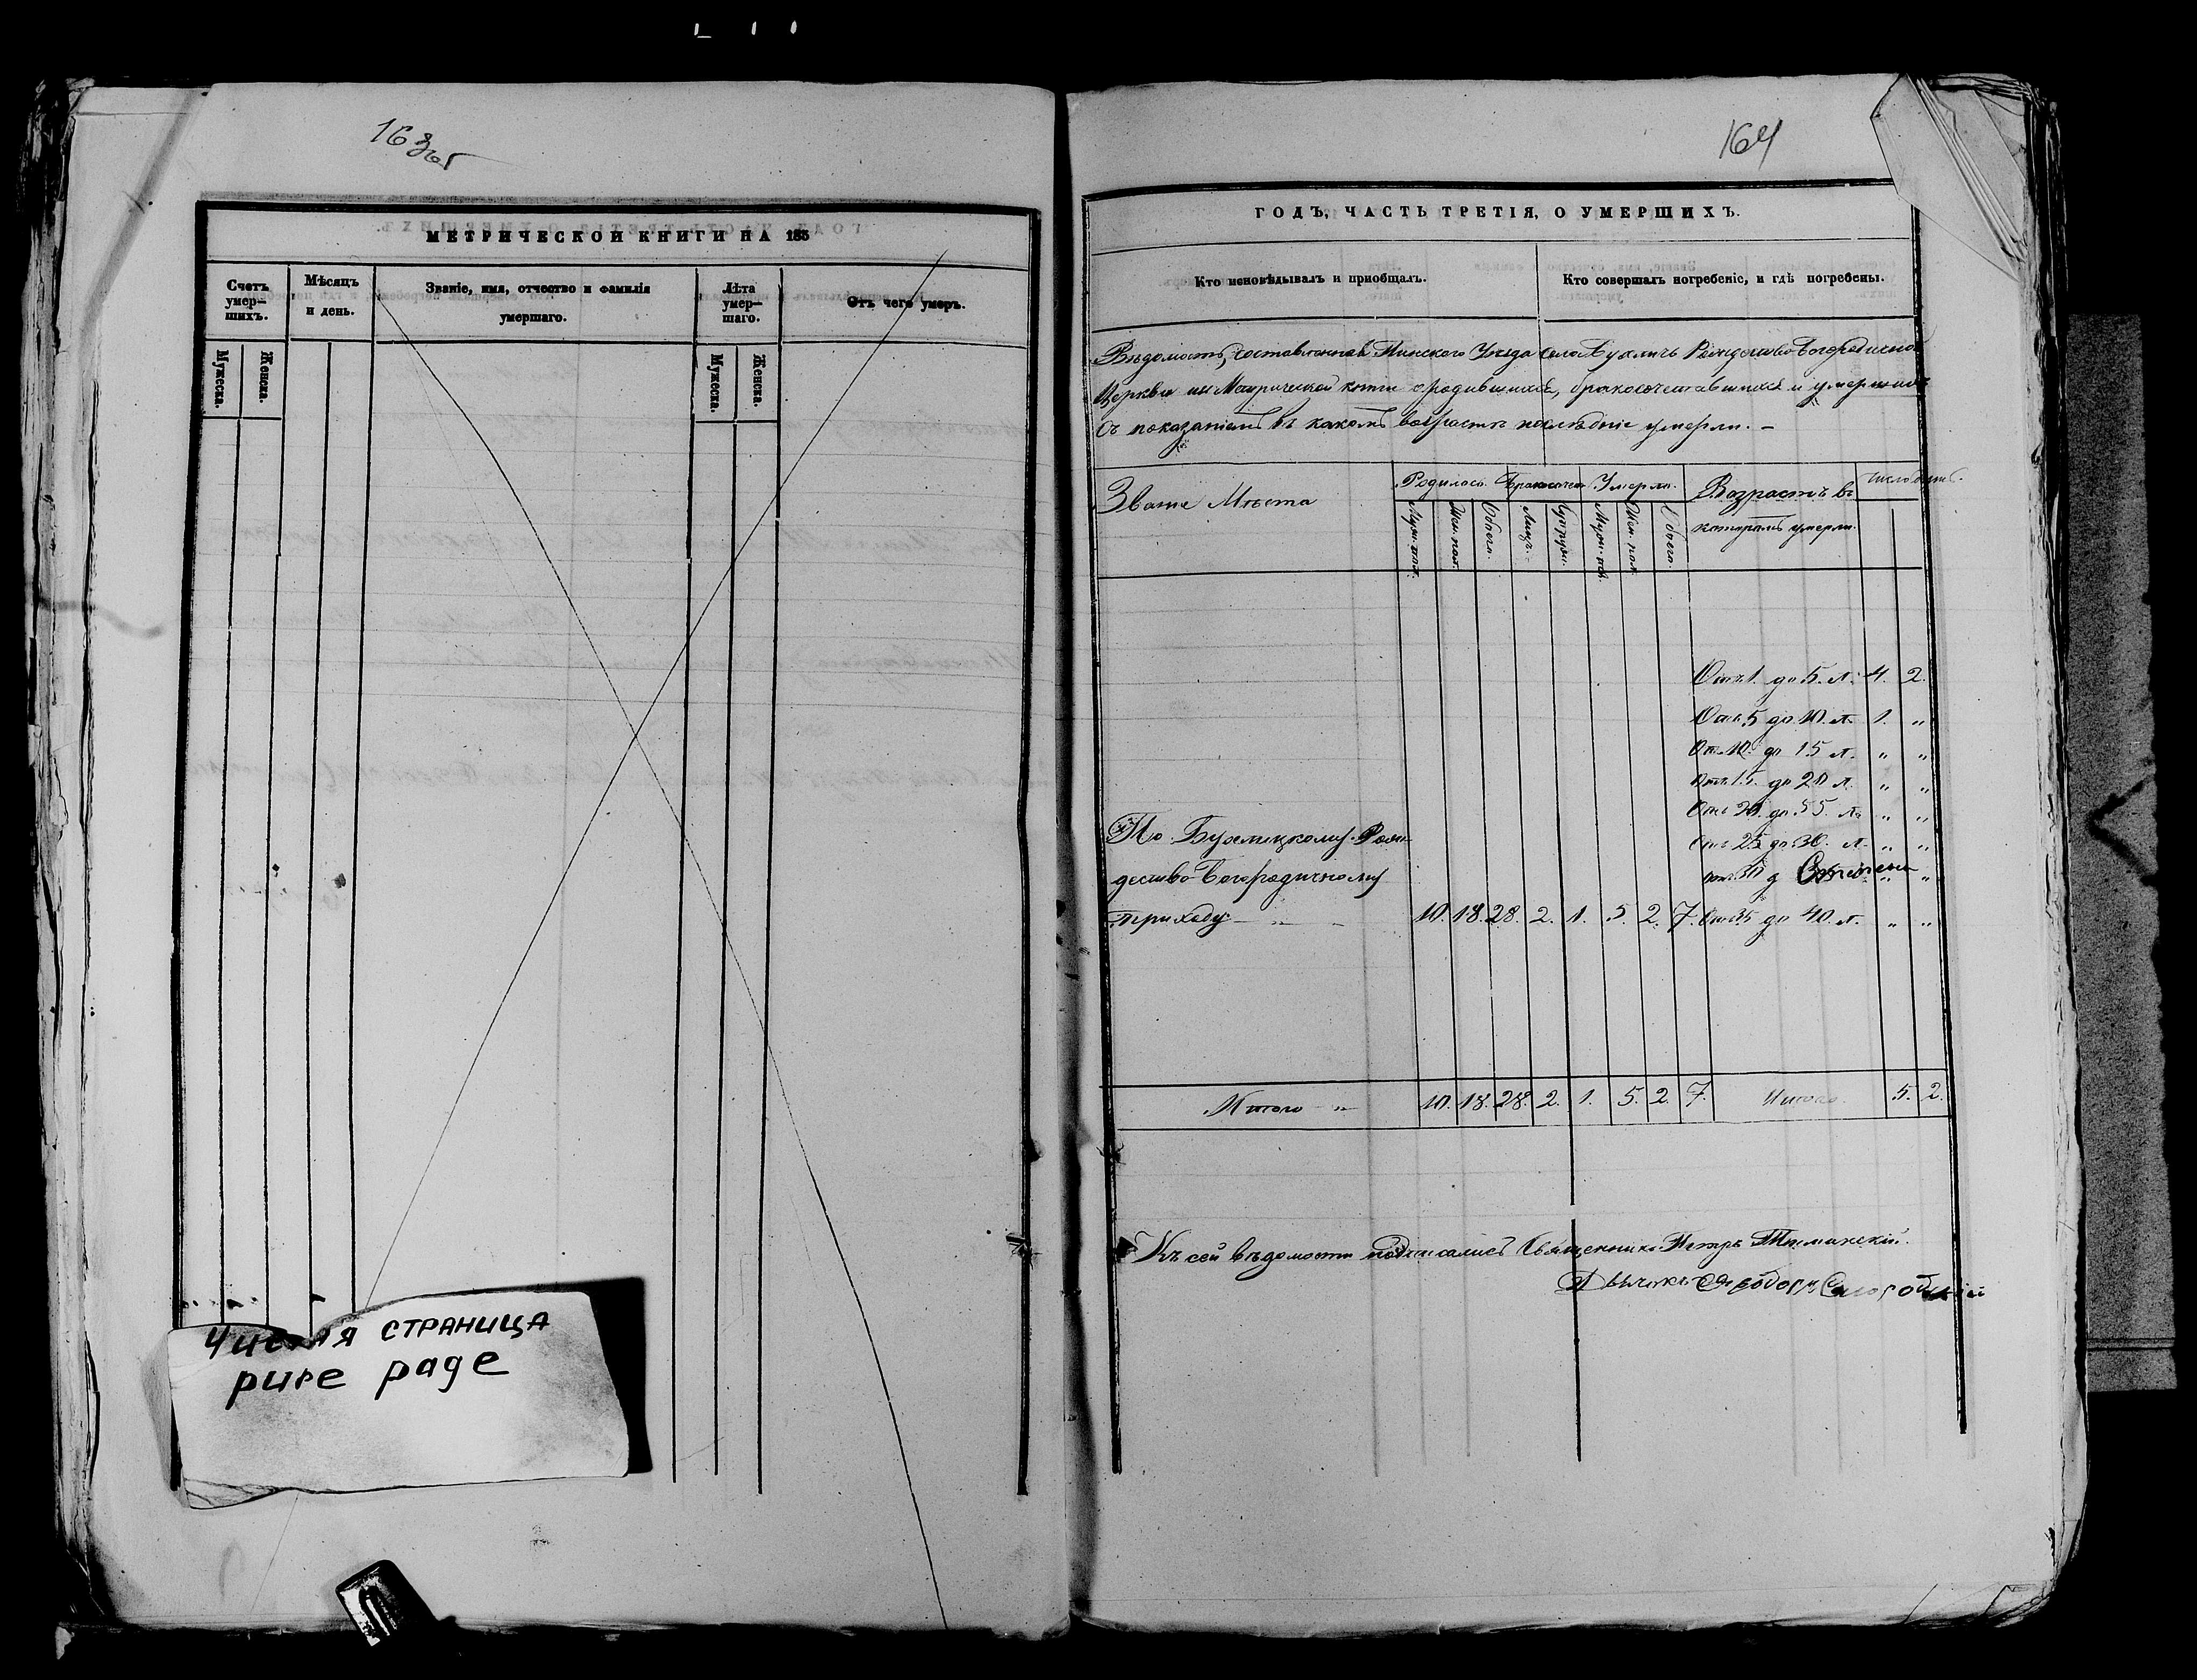 163 об
МЕТРИЧЕСКОЙ КНИГИ НА 185
Счетъ умер—шихъ.
Мѣсяцъ и день.
Званіе, имя, отчество и фамилія умершаго.
Лѣта умер—шаго.
Отъ чего умеръ.
Мужеска.
Женска.
Мужеска.
Женска.
Чистая страница
pure page
164
ГОДЪ, ЧАСТЬ ТРЕТІЯ, О УМЕРШИХЪ.
Кто исповѣдывалъ и пріобщалъ.
Кто совершалъ погребеніе, и гдѣ погребены.
Вѣдомость, составленная Пинскаго Уѣзда села Бухличь Рождество-Богородичной
Церкви изъ Метрической книги о родившихся, бракосочетавшихся и умершихъ
съ показаніемъ въ какомъ возрастѣ послѣдніе умерли. —
Званіе Мѣста
Родилось
Бракосочет.
Умерло.
Возрастъ въ
которомъ умерли.
Муж. пол.
Жен. пол.
Обоего.
Лицъ.
Супруж.
Муж. пол.
Жен. пол.
Обоего.
Отъ 1. до 5. л. 4. 2.
Отъ 5 до 10. л. 1. „
От. 10. до 15 л. „ „
Отъ 15. до 20 л. „ „
„ „
Отъ 25 до 30. л. „ „
„ „
По Бухлицкому Рож-
дество-Богородичному
приходу 10. 18. 28. 2. 1. 5. 2. 7. От 35 до 40. л. „ „
Итого „ 10. 18. 28. 2. 1. 5. 2. 7. Итого. 5. 2.
Къ сей вѣдомости подписались Священникъ Петръ Тиманскій.